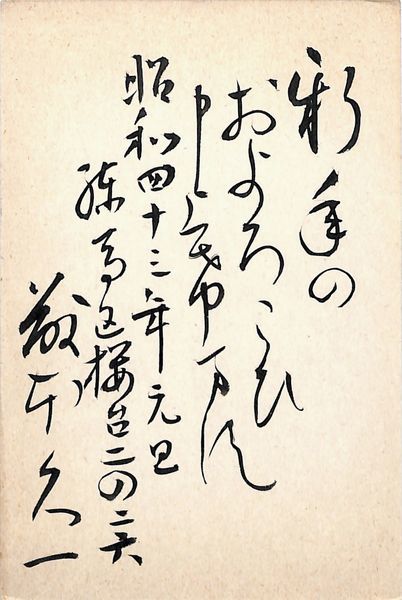 新年の
およろこび
申上
昭和四十三年元旦
練馬区櫻台二の二六
久一